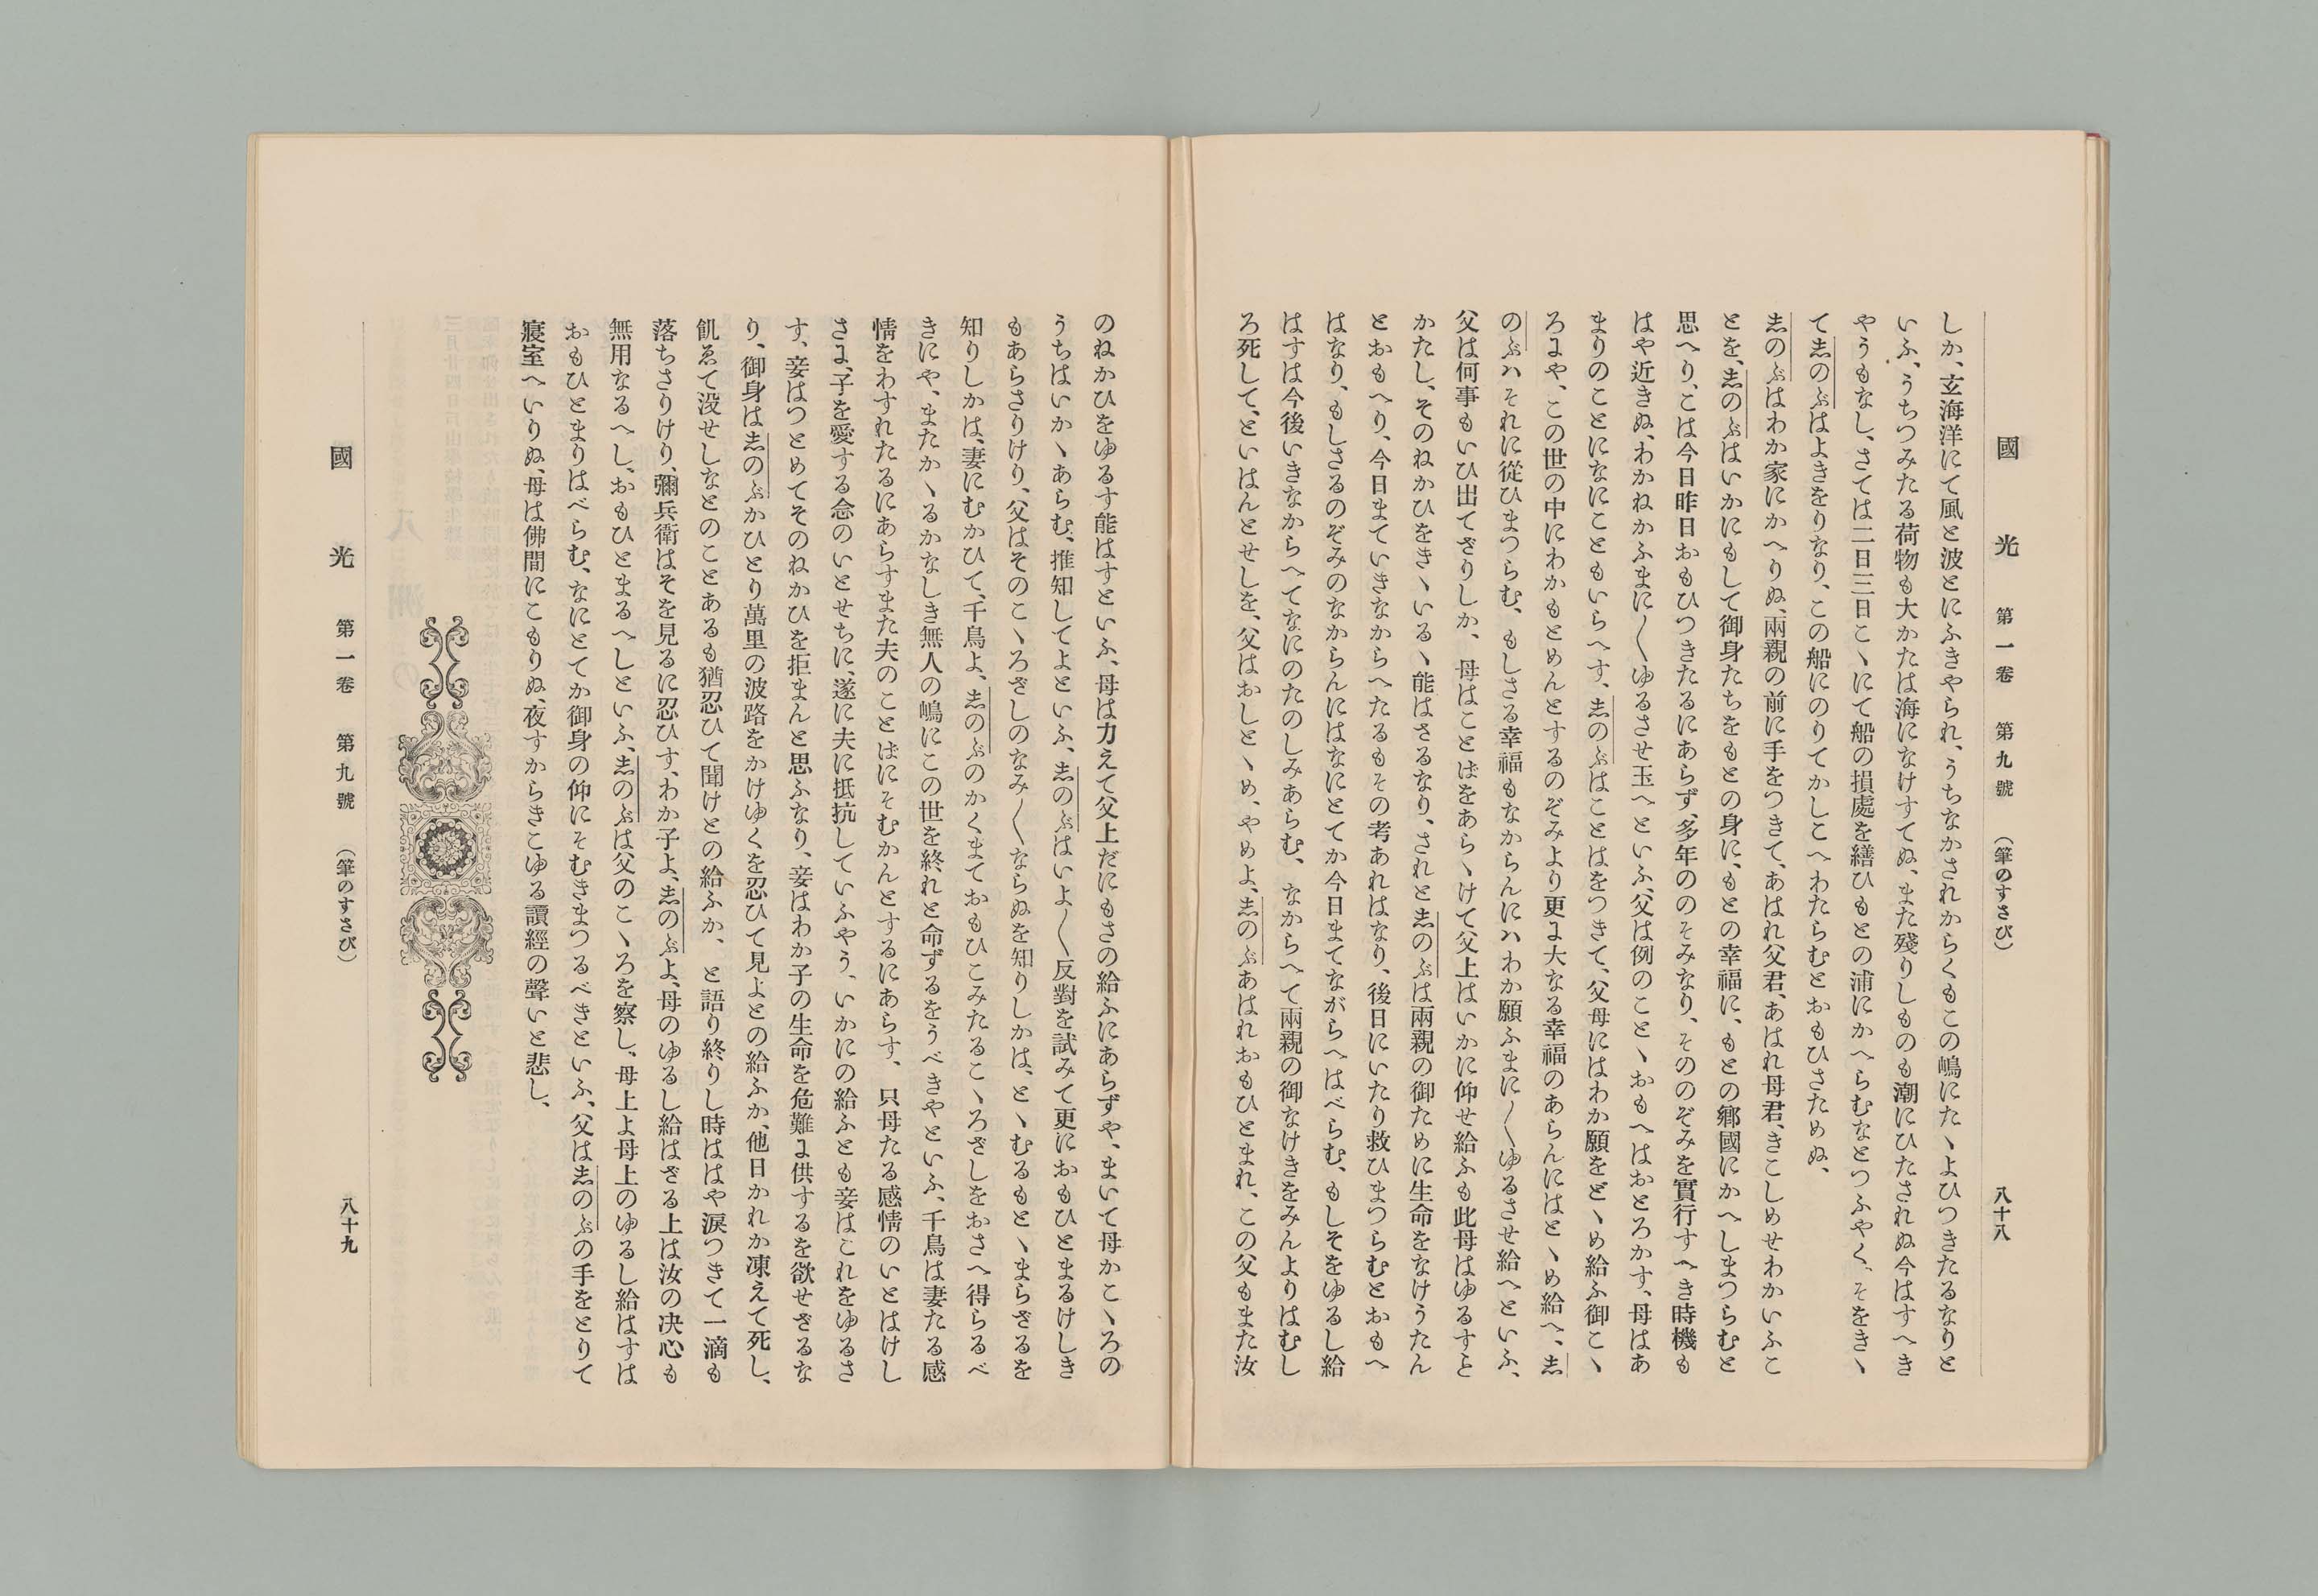 國光 第一卷 第九號 (筆のすさび) 八十八
しか、玄海洋にて風と波とにふきやられ、うちなかされからくもこの嶋にたゝよひつきたるなりと
いふ、うちつみたる荷物も大かたは海になけすてぬ、また殘りしものも潮にひたされぬ今はすへき
やうもなし、さては二日三日こゝにて船の損處を繕ひもとの浦にかへらむなとつふやく、そをきゝ
て志のぶはよきをりなり、この船にのりてかしこへわたらむとおもひさためぬ、
志のぶはわか家にかへりぬ、兩親の前に手をつきて、あはれ父君、あはれ母君、きこしめせわかいふこ
とを、志のぶはいかにもして御身たちをもとの身に、もとの幸福に、もとの鄕國にかへしまつらむと
思へり、こは今日昨日おもひつきたるにあらず、多年ののそみなり、そののぞみを實行すへき時機も
はや近きぬ、わかねかふまに〱ゆるさせ玉へといふ、父は例のことゝおもへはおとろかす、母はあ
まりのことになにこともいらへす、志のぶはことはをつきて、父母にはわか願をとゝめ給ふ御こゝ
ろまや、この世の中にわかもとめんとするのぞみより更ま大なる幸福のあらんにはとゝめ給へ、志
のぶハそれに從ひまつらむ、もしさる幸福もなからんにハわか願ふまに〱ゆるさせ給へといふ、
父は何事もいひ出てざりしか、母はことばをあらゝけて父上はいかに仰せ給ふも此母はゆるすと
かたし、そのねかひをきゝいるゝ能はさるなり、されと志のぶは兩親の御ために生命をなけうたん
とおもへり、今日まていきなからへたるもその考あれはなり、後日にいたり救ひまつらむとおもへ
はなり、もしさるのぞみのなからんにはなにとてか今日まてながらへはべらむ、もしそをゆるし給
はすは今後いきなからへてなにのたのしみあらむ、なからへて兩親の御なけきをみんよりはむし
ろ死して、といはんとせしを、父はおしとゝめ、やめよ、志のぶあはれおもひとまれ、この父もまた汝
のねかひをゆるす能はすといふ、母は力えて父上だにもさの給ふにあらずや、まいて母かこゝろの
うちはいかゝあらむ、推知してよといふ、志のぶはいよ〱反對を試みて更におもひとまるけしき
もあらさりけり、父はそのこゝろざしのなみ〱ならぬを知りしかは、とゝむるもとゝまらざるを
知りしかは、妻にむかひて、千鳥よ、志のぶのかくまておもひこみたるこゝろざしをおさへ得らるべ
きにや、またかゝるかなしき無人の嶋にこの世を終れと命ずるをうべきやといふ、千鳥は妻たる感
情をわすれたるにあらすまた夫のことばにそむかんとするにあらす、只母たる感情のいとはけし
さま、子を愛する念のいとせちに、遂に夫に抵抗していふやう、いかにの給ふとも妾はこれをゆるさ
す、妾はつとめてそのねかひを拒まんと思ふなり、妾はわか子の生命を危難ま供するを欲せざるな
り、御身は志のぶかひとり萬里の波路をかけゆくを忍ひて見よとの給ふか、他日かれか凍えて死し、
飢ゑて没せしなとのことあるも猶忍ひて聞けとの給ふか、と語り終りし時ははや淚つきて一滴も
落ちさりけり、彌兵衛はそを見るに忍ひす、わか子よ、志のぶよ、母のゆるし給はざる上は汝の决心も
無用なるへし、おもひとまるへしといふ、志のぶは父のこゝろを察し、母上よ母上のゆるし給はすは
おもひとまりはべらむ、なにとてか御身の仰にそむきまつるべきといふ、父は志のぶの手をとりて
寢室へいりぬ、母は佛間にこもりぬ、夜すからきこゆる讀經の聲いと悲し、
國光 第一卷 第九號 (筆のすさび) 八十九